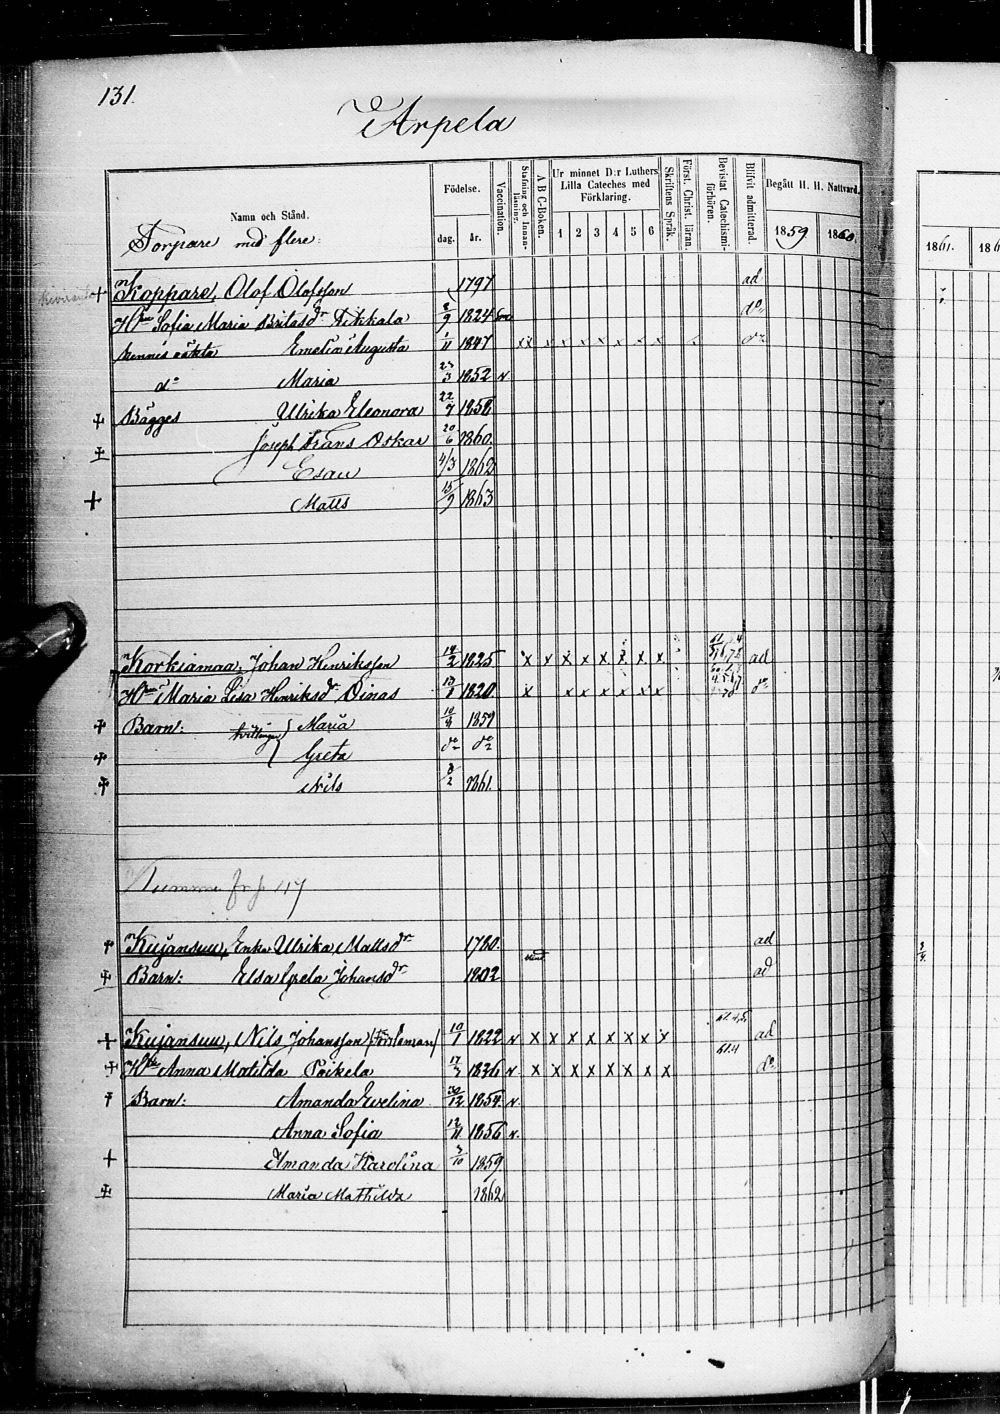 131.
Arpela
Namn och Stånd.
Torpare med flere:
Födelse.
dag. år.
Vaccination.
Stafning och Innanläsning.
A B C-Boken.
Ur minnet D:r Luthers Lilla Cateches med Förklaring.
1 2 3 4 5 6
Skriftens Språk.
Först. Christ. läran.
Bevistat Catechismiförhören.
Blifvit admitterad.
Begått H. H. Nattvard.
1859 1860.
1861. 186
+ Koppare, Olof Olofsson 1797 ad
Hru Sofia Maria Britasdr Tikkala 2/9 1824 do
hennes oäkta Emelia Augusta 1/11 1847 x x x x x x x x do
do Maria 23/3 1852 v.
+ Bägges Ulrika Eleonora 22/7 1858
+ Joseph Frans Oskar 20/6 1860.
Esau 4/3 1862
+ Matts 15/9 1863
Korkiamaa, Johan Henriksson 19/2 1825 x x x x x x x x ad
Hru Maria Lisa Henriksdr Oinas 13/8 1820. x x x x x x x do
+ Barn: tvillingar Maria 10/8 1859
+ Greta do do
+ Nils 8/2 1861.
+ Kujansuu, Enka Ulrika Mattsdr 1780. ad
+ Barn: Elsa Greta Johansdr 1802 blind ad
+ Kujansuu, Nils Johansson 10/1 1822 v x x x x x x x x 61.4,5. ad
+ Hru Anna Matilda Poikela 17/3 1836 v. x x x x x x x x 61.4 do
+ Barn: Amanda Evelina 30/12 1854. v.
Anna Sofia 12/11 1856 v.
+ Amanda Karolina 3/10 1859
+ Maria Mathilda 1862